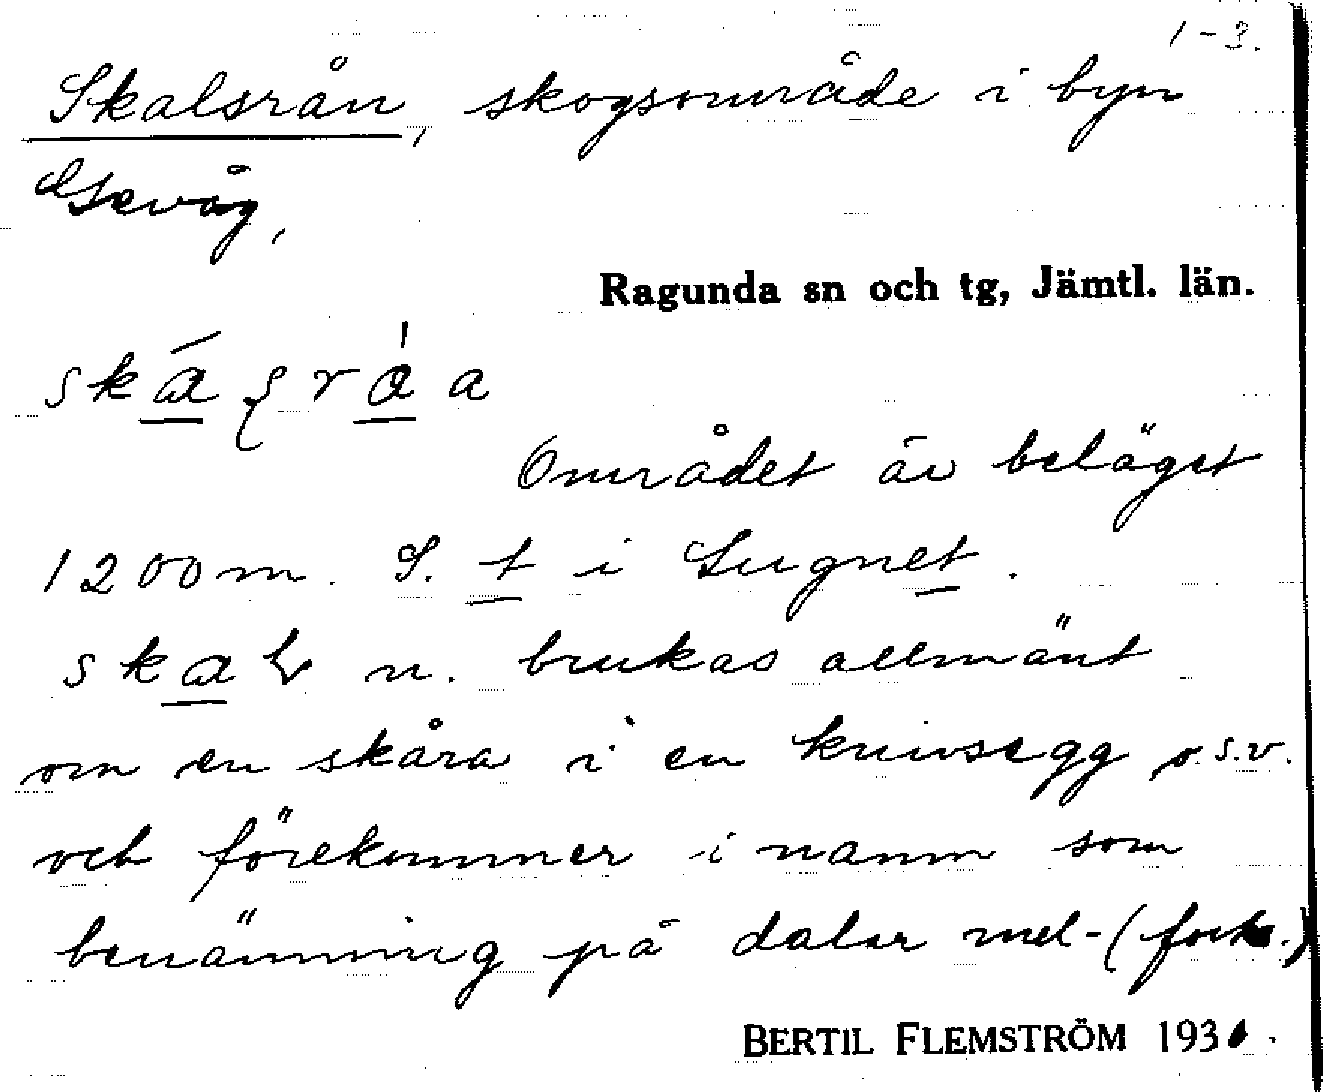 1-3.
Skalsrån, skogsområde i byn
Gevåg,
Ragunda sn och tg, Jämtl. län.
Området är beläget
1200 m. S. t i Lugnet.
n. brukas allmänt
om en skåra i en knivsegg o.s.v.
och förekommer i namn som
benämning på dalar mel- (forts.)
BERTIL FLEMSTRÖM 193